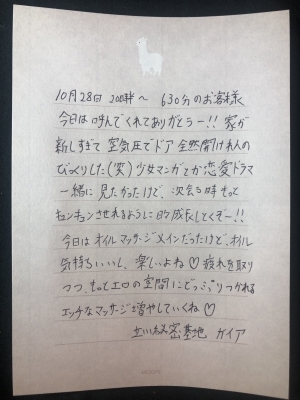 10月28日 20時半〜 630分のお客様
今日は呼んでくれてありがとラー!! 家が
新しすぎて 空気圧でドア 全然開けれんの
びっくりした(笑) 少女マンガとか恋愛ドラマ
一緒に 見たかったけど、次会う時 もっと
キュンキュンさせれるように 日々成長してくぞー!!
今日はオイルマッサージメインだったけど、オイル
気持ちいいし、楽しいよね♡ 疲れを取り
つつ、もっとエロの空間にどっぷりつかれる
エッチなマッサージ増やしていくね♡
立川秘密基地 カイア